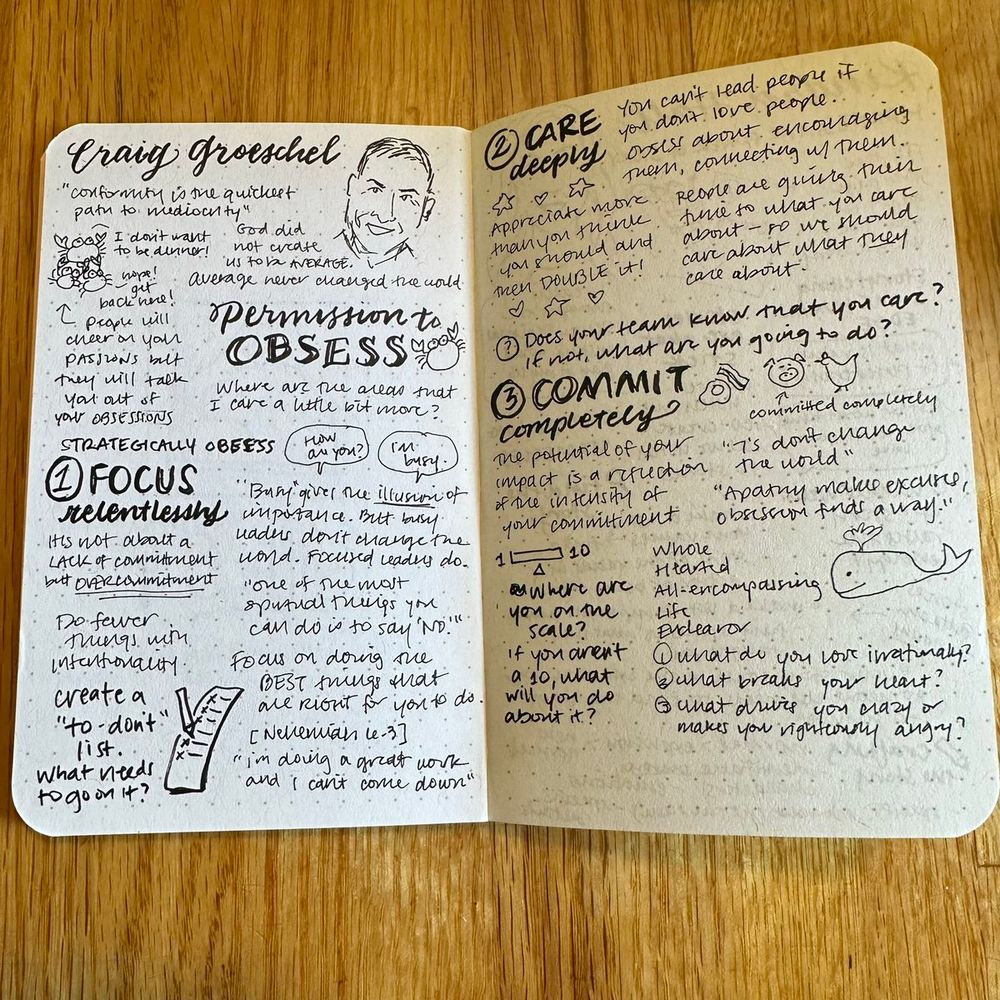 Craig Groeschel
"Conformity is the quickest
path to mediocrity"
I don't want
to be dinner!
nope!
get
back here!
People will
cheer on your
PASSIONS but
they will talk
you out of
your OBSESSIONS
God did
not create
us to be AVERAGE.
average never changed the world.
Permission to
OBSESS
Where are the areas that
I care a little bit more?
STRATEGICALLY OBSESS
How
are you?
I'm
busy.
1 FOCUS
relentlessly
It's not about a
LACK of commitment
but OVERCOMMITMENT
Do fewer
things with
intentionality.
create a
"to-dont"
list.
What needs
to go on it?
"Busy" gives the illusion of
importance. But busy
leaders don't change the
world. Focused leaders do.
"one of the most
spiritual things you
can do is to say 'NO!'"
Focus on doing the
BEST things that
are right for you to do.
[Nehemiah 6:3]
"i'm doing a great work
and i can't come down"
2 CARE
deeply
You can't lead people if
you don't love people.
Obsess about encouraging
them, connecting w/ them.
Appreciate more
than you think
you should and
then DOUBLE it!
People are giving their
time to what you care
about - so we should
care about what they
care about.
? Does your team know that you care?
If not, what are you going to do?
3 COMMIT
completely
committed completely
the potential of your
impact is a reflection
of the intensity of
your commitment
"7's don't change
the world"
"Apathy makes excuses,
obsession finds a way."
1 10
where are
you on the
scale?
if you arent
a 10, what
will you do
about it?
Whole
Hearted
All-encompassing
Life
Endeavor
1 what do you love irrationally?
2 what breaks your heart?
3 what drives you crazy or
makes you righteously angry?